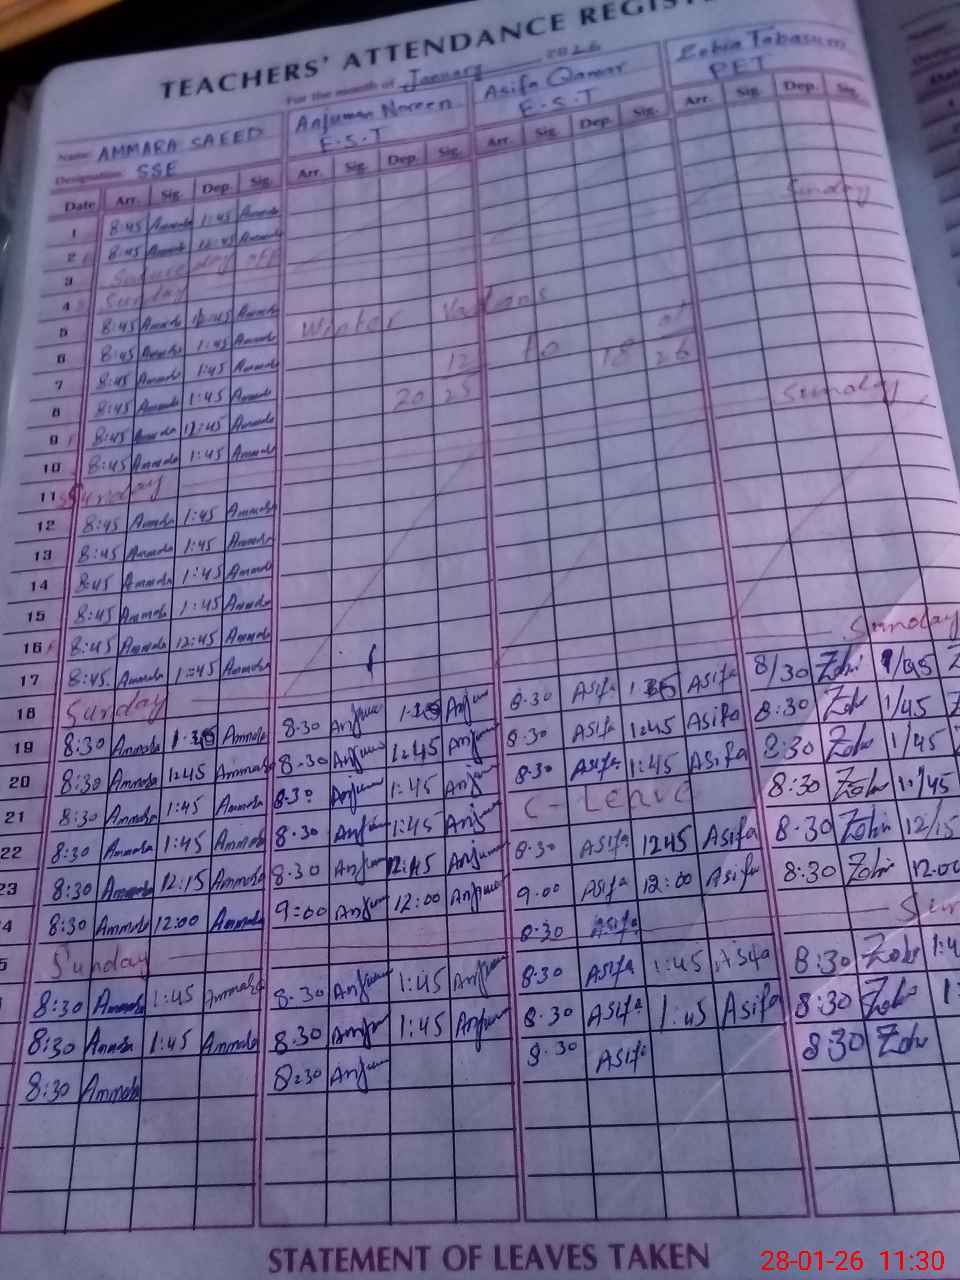 TEACHERS' ATTENDANCE REGIST
For the month of January 2026
Name AMMARA SAEED Anjuman Noreen Asifa Qamar Zobia Tabasum
Designation SSE E.S.T E.S.T PET
Date Arr. Sig. Dep. Sig. Arr. Sig. Dep. Sig. Arr. Sig. Dep. Sig. Arr. Sig. Dep. Sig.
1 8:45 Ammara 1:45 Ammara
2 8:45 Ammara 12:45 Ammara
3 day off
4 Sunday Sunday
5 8:45 Ammara Ammara
6 8:45 Ammara 1:45 Ammara Winter
7 8:45 Ammara 1:45 Ammara 12 to 18
8 8:45 Ammara 1:45 Ammara 20 25 26
9 8:45 Ammara 12:45 Ammara
10 8:45 Ammara 1:45 Ammara
11 Sunday Sunday
12 8:45 Ammara 1:45 Ammara
13 8:45 Ammara 1:45 Ammara
14 8:45 Ammara 1:45 Ammara
15 8:45 Ammara 1:45 Ammara
16 8:45 Ammara 12:45 Ammara
17 8:45 Ammara 1:45 Ammara
18 Sunday Sunday
19 8:30 Ammara Ammara 8:30 Anjum Anjum 8:30 Asifa Asifa 8/30 Zobi
20 8:30 Ammara 1:45 Ammara 8:30 Anjum 1:45 Anjum 8:30 Asifa 1:45 Asifa 8:30 Zobi 1/45
21 8:30 Ammara 1:45 Ammara 8:30 Anjum 1:45 Anjum 8:30 Asifa 1:45 Asifa 8:30 Zobi 1/45
22 8:30 Ammara 1:45 Ammara 8:30 Anjum 1:45 Anjum C-Leave 8:30 Zobi
23 8:30 Ammara 12:15 Ammara 8:30 Anjum 12:45 Anjum 8:30 Asifa 1245 Asifa 8:30 Zobi 12/15
4 8:30 Ammara 12:00 Ammara 9:00 Anjum 12:00 Anjum 9:00 Asifa 12:00 Asifa 8:30 Zobi 12:00
5 Sunday 8:30 Asifa Sun
8:30 Ammara 1:45 Ammara 8:30 Anjum 1:45 Anjum 8:30 Asifa 1:45 Asifa 8:30 Zobi 1:4
8:30 Ammara 1:45 Ammara 8:30 Anjum 1:45 Anjum 8:30 Asifa 1:45 Asifa 8:30 Zobi
8:30 Ammara 8:30 Anjum 8:30 Asifa 8:30 Zobi
STATEMENT OF LEAVES TAKEN
28-01-26 11:30